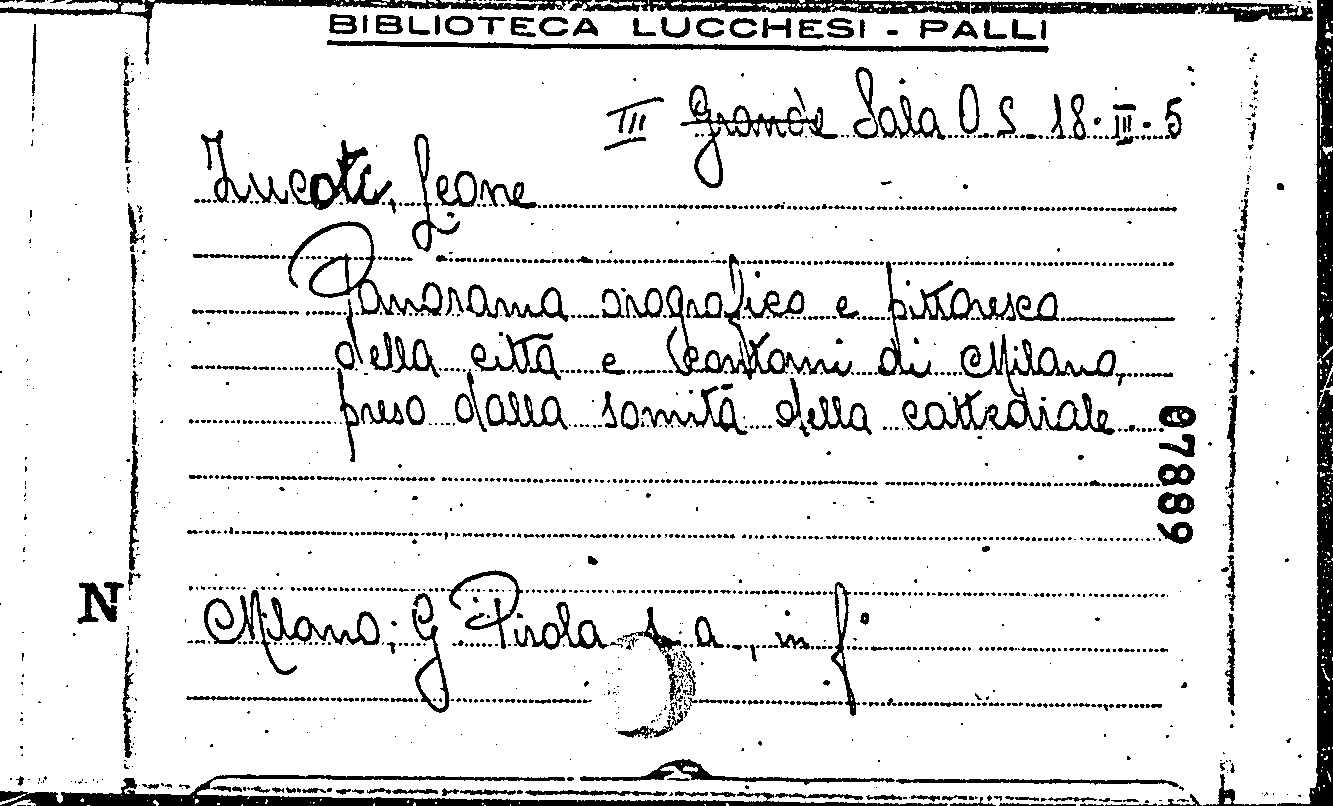 BIBLIOTECA LUCCHESI - PALLI
III Grande Sala O. S. 18. III. 5
Zucoli, Leone
Panorama orografico e pittoresco
della città e contorni di Milano,
preso dalla somità della cattedrale.
07889
N
Milano, G. Pirola s. a., in f°